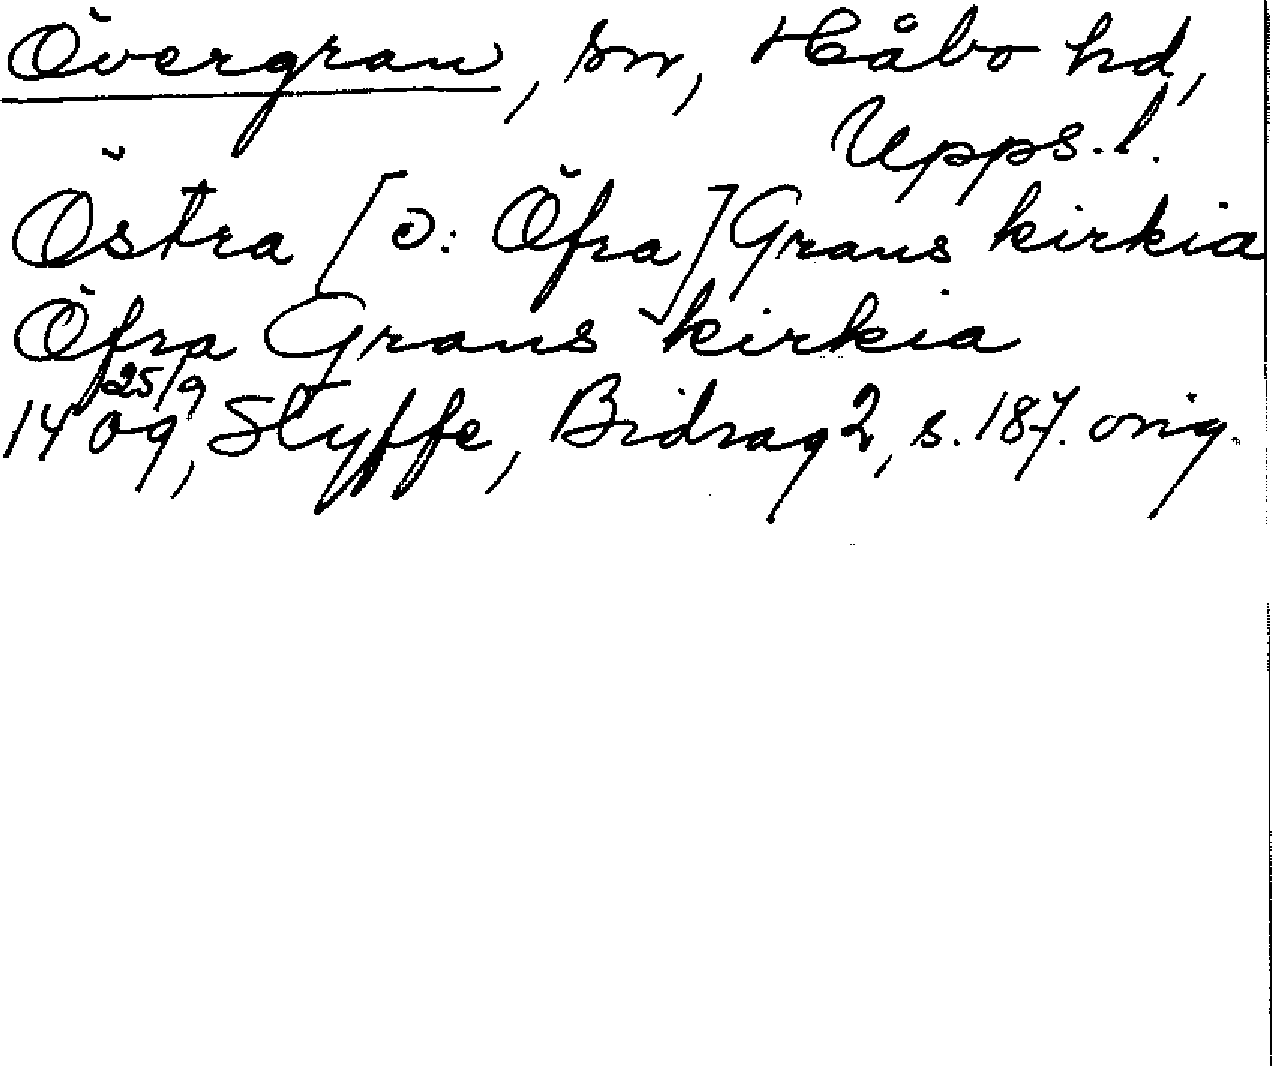 Övergran, sn, Håbo hd,
Upps. l.
Östra [ɔ: Öfra] Grans kirkia
Öfra Grans kirkia
1409 25/9, Styffe, Bidrag 2, s. 187. orig.